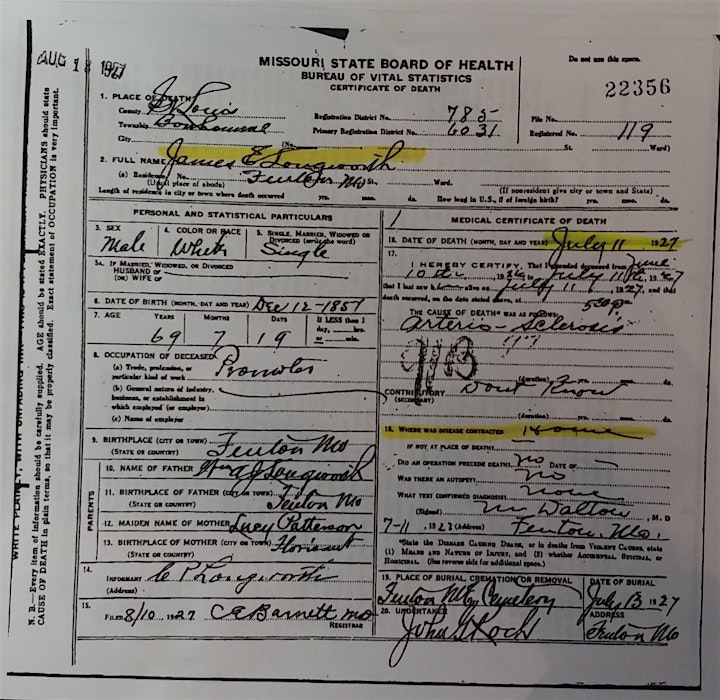 AUG 1 1927
MISSOURI STATE BOARD OF HEALTH
BUREAU OF VITAL STATISTICS
CERTIFICATE OF DEATH
Do not use this space.
22356
1. PLACE OF DEATH
County St Louis
Township Bonhomme
City (No. St. Ward)
Registration District No. 785
Primary Registration District No. 6031
File No.
Registered No. 119
2. FULL NAME James E Longworth
(a) Residence. No. Fenton Mo St. Ward.
(Usual place of abode) (If nonresident give city or town and State)
Length of residence in city or town where death occurred yrs. mos. ds. How long in U.S., if of foreign birth? yrs. mos. ds.
PERSONAL AND STATISTICAL PARTICULARS
3. SEX Male
4. COLOR OR RACE White
5. SINGLE, MARRIED, WIDOWED OR DIVORCED (write the word) Single
5a. IF MARRIED, WIDOWED, OR DIVORCED
HUSBAND OF
(OR) WIFE OF
6. DATE OF BIRTH (MONTH, DAY AND YEAR) Dec 12-1857
7. AGE YEARS MONTHS DAYS If LESS than 1 day, hrs. or min.
69 7 19
8. OCCUPATION OF DECEASED
(a) Trade, profession, or particular kind of work
(b) General nature of industry, business, or establishment in which employed (or employer)
(c) Name of employer
9. BIRTHPLACE (CITY OR TOWN) Fenton Mo
(STATE OR COUNTRY)
PARENTS
10. NAME OF FATHER Longworth
11. BIRTHPLACE OF FATHER (CITY OR TOWN) Fenton Mo
(STATE OR COUNTRY)
12. MAIDEN NAME OF MOTHER Lucy Patterson
13. BIRTHPLACE OF MOTHER (CITY OR TOWN) Florisant
(STATE OR COUNTRY)
14.
INFORMANT C P Longworth
(Address)
15.
FILED 8/10 1927 C E Barnett MD
REGISTRAR
MEDICAL CERTIFICATE OF DEATH
16. DATE OF DEATH (MONTH, DAY AND YEAR) July 11 1927
17.
I HEREBY CERTIFY, That I attended deceased from June
10th, 1926, to July 11th, 1927
that I last saw h alive on July 11, 1927, and that
death occurred, on the date stated above, at
THE CAUSE OF DEATH* WAS AS FOLLOWS:
Arterio-Sclerosis
(duration) yrs. mos. ds.
CONTRIBUTORY Dont Know
(SECONDARY)
(duration) yrs. mos. ds.
18. WHERE WAS DISEASE CONTRACTED Home
IF NOT AT PLACE OF DEATH?
DID AN OPERATION PRECEDE DEATH? No DATE OF
WAS THERE AN AUTOPSY? No
WHAT TEST CONFIRMED DIAGNOSIS? None
(Signed) Walton, M.D
7-11, 1927 (Address) Fenton, Mo.
*State the DISEASE CAUSING DEATH, or in deaths from VIOLENT CAUSES, state
(1) MEANS AND NATURE OF INJURY, and (2) whether ACCIDENTAL, SUICIDAL, or
HOMICIDAL. (See reverse side for additional space.)
19. PLACE OF BURIAL, CREMATION OR REMOVAL
Fenton M.E. Cemetery
DATE OF BURIAL
July 13 1927
20. UNDERTAKER
John Koch
ADDRESS
Fenton Mo
N. B.—Every item of information should be carefully supplied. AGE should be stated EXACTLY. PHYSICIANS should state
CAUSE OF DEATH in plain terms, so that it may be properly classified. Exact statement of OCCUPATION is very important.